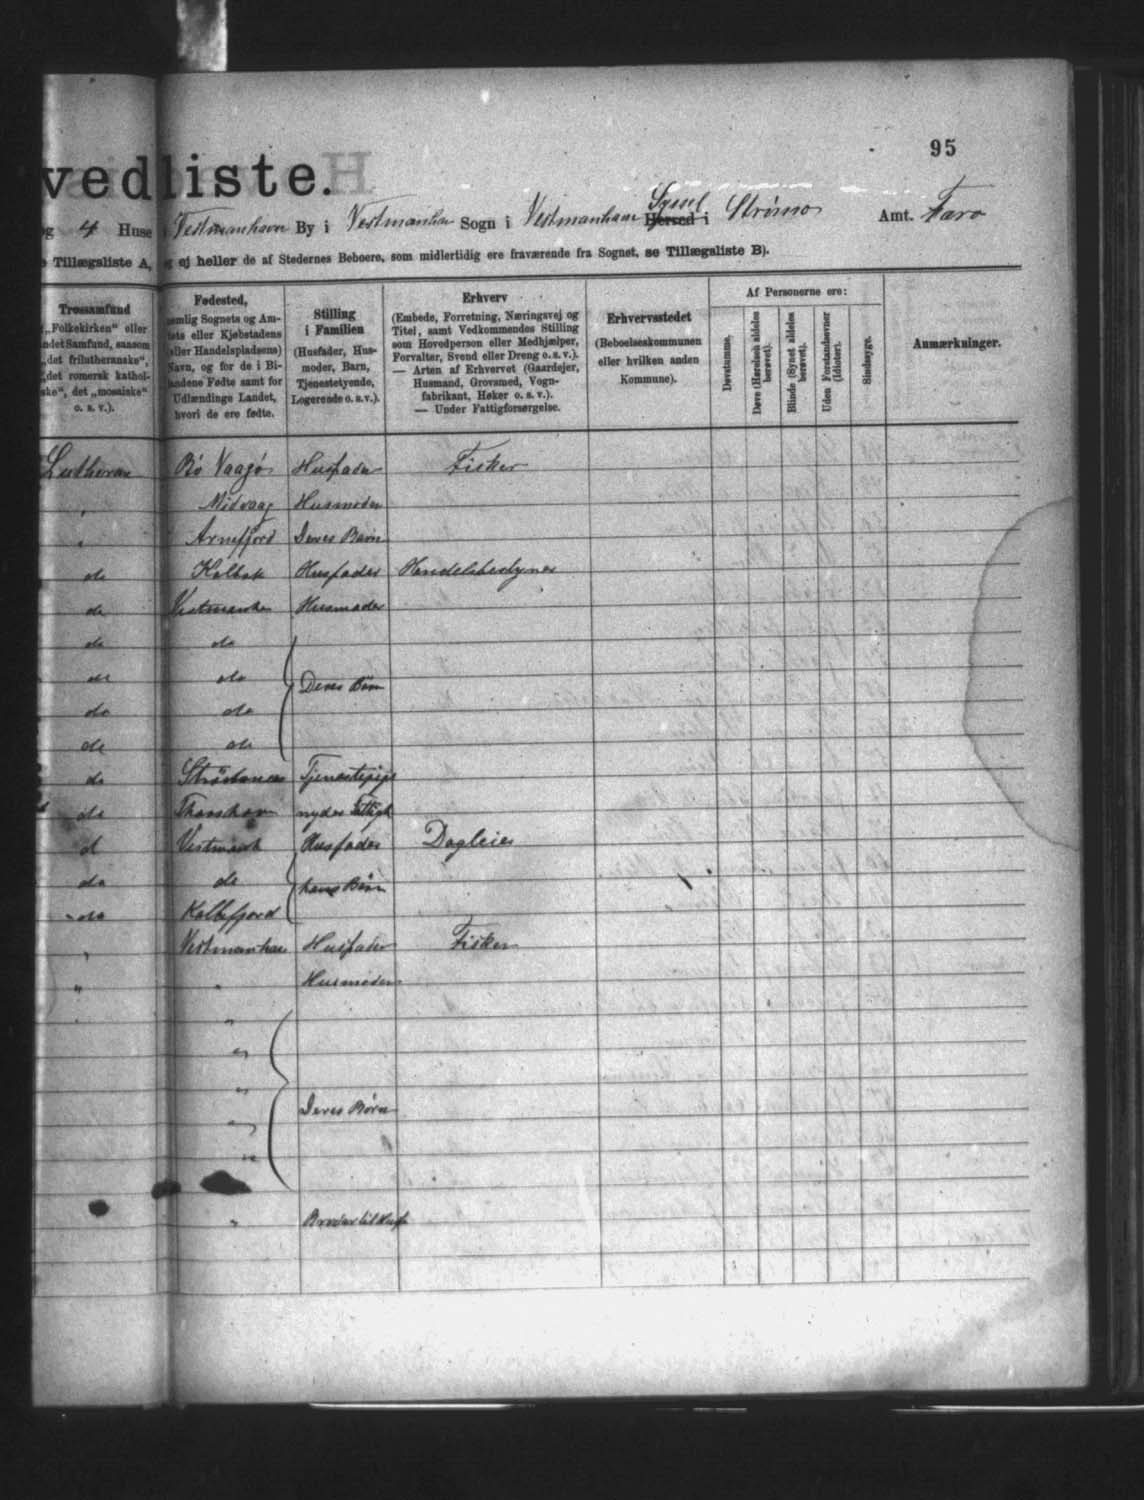 95
vedliste.
og 4 Huse i Vestmanhavn By i Vestmanhav Sogn i Vestmanhavn Syssel Herred i Strömo Amt. Færø
e Tillægsliste A, og ej heller de af Stedernes Beboere, som midlertidig ere fraværende fra Sognet, se Tillægsliste B).
Trossamfund
(„Folkekirken“ eller
andet Samfund, saasom
„det frilutheranske“,
„det romersk kathol-
ske“, det „mosaiske“
o. s. v.).
Fødested,
nemlig Sognets og Am-
tets eller Kjøbstadens
(eller Handelspladsens)
Navn, og for de i Bi-
landene Fødte samt for
Udlændinge Landet,
hvori de ere fødte.
Stilling
i Familien
(Husfader, Hus-
moder, Barn,
Tjenestetyende,
Logerende o. s. v.).
Erhverv
(Embede, Forretning, Næringsvej og
Titel, samt Vedkommendes Stilling
som Hovedperson eller Medhjælper,
Forvalter, Svend eller Dreng o. s. v.).
— Arten af Erhvervet (Gaardejer,
Husmand, Grovsmed, Vogn-
fabrikant, Høker o. s. v.).
— Under Fattigforsørgelse.
Erhvervsstedet
(Beboelseskommunen
eller hvilken anden
Kommune).
Af Personerne ere:
Døvstumme.
Døve (Hørelsen aldeles
berøvet).
Blinde (Synet aldeles
berøvet).
Uden Forstandsevner
(Idioter).
Sindssyge.
Anmærkninger.
Lutheran Bö Vaagö Husfader Fisker
" Midvaag Husmoder
" Arnefjord Deres Barn
do Kolbak Husfader Handelsbestyrer
do Vestmanha Husmoder
do do
do do Deres Börn
do do
do do
do Tjenestepige
do Thorshavn nyder
d Vestmanh Husfader Dagleier
do do hans Börn
do Kolbefjord
" Vestmanhav Husfader Fisker
" " Husmoder
" "
"
"
" Deres Börn
"
" Broder til Husf